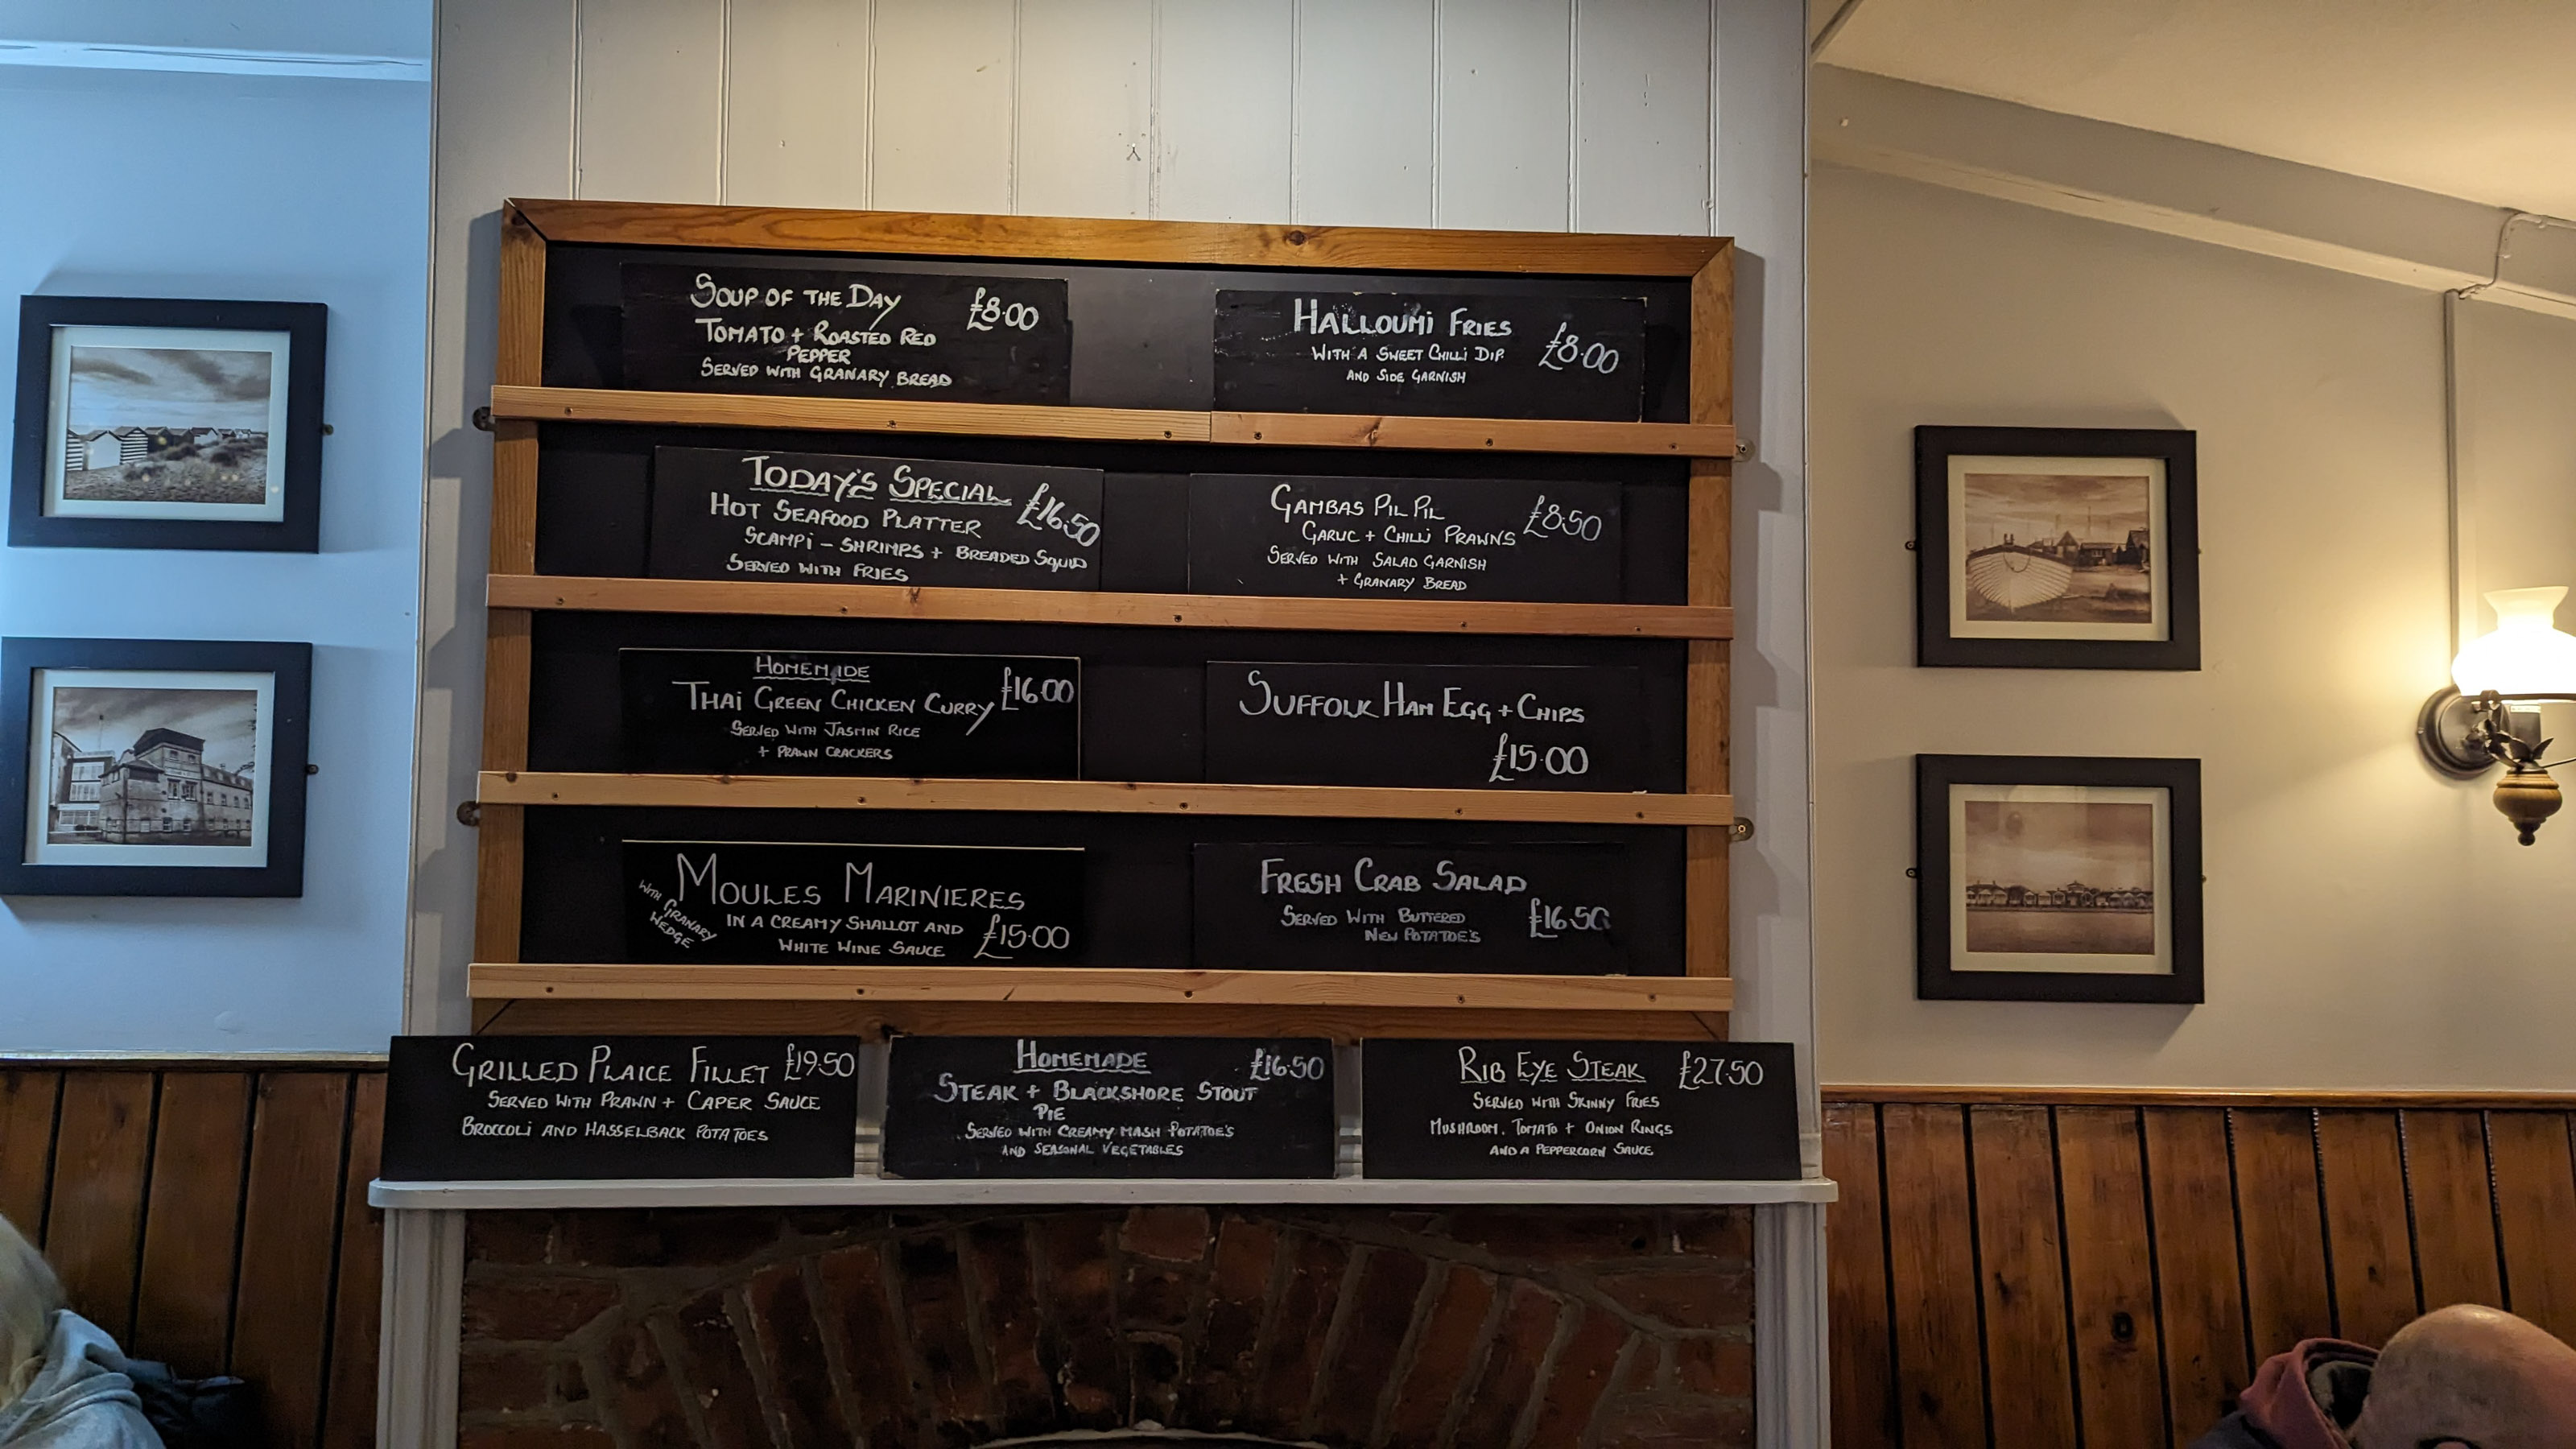 SOUP OF THE DAY £8.00
TOMATO + ROASTED RED
PEPPER
SERVED WITH GRANARY BREAD
HALLOUMI FRIES
WITH A SWEET CHILLI DIP £8.00
AND SIDE GARNISH
TODAY'S SPECIAL £16.50
HOT SEAFOOD PLATTER
SCAMPI - SHRIMPS + BREADED SQUID
SERVED WITH FRIES
GAMBAS PIL PIL £8.50
GARLIC + CHILLI PRAWNS
SERVED WITH SALAD GARNISH
+ GRANARY BREAD
HOMEMADE
THAI GREEN CHICKEN CURRY £16.00
SERVED WITH JASMIN RICE
+ PRAWN CRACKERS
SUFFOLK HAM EGG + CHIPS
£15.00
MOULES MARINIERES
WITH GRANARY
WEDGE
IN A CREAMY SHALLOT AND
WHITE WINE SAUCE £15.00
FRESH CRAB SALAD
SERVED WITH BUTTERED £16.50
NEW POTATOE'S
GRILLED PLAICE FILLET £19.50
SERVED WITH PRAWN + CAPER SAUCE
BROCCOLI AND HASSELBACK POTATOES
HOMEMADE £16.50
STEAK + BLACKSHORE STOUT
PIE
SERVED WITH CREAMY MASH POTATOE'S
AND SEASONAL VEGETABLES
RIB EYE STEAK £27.50
SERVED WITH SKINNY FRIES
MUSHROOM, TOMATO + ONION RINGS
AND A PEPPERCORN SAUCE